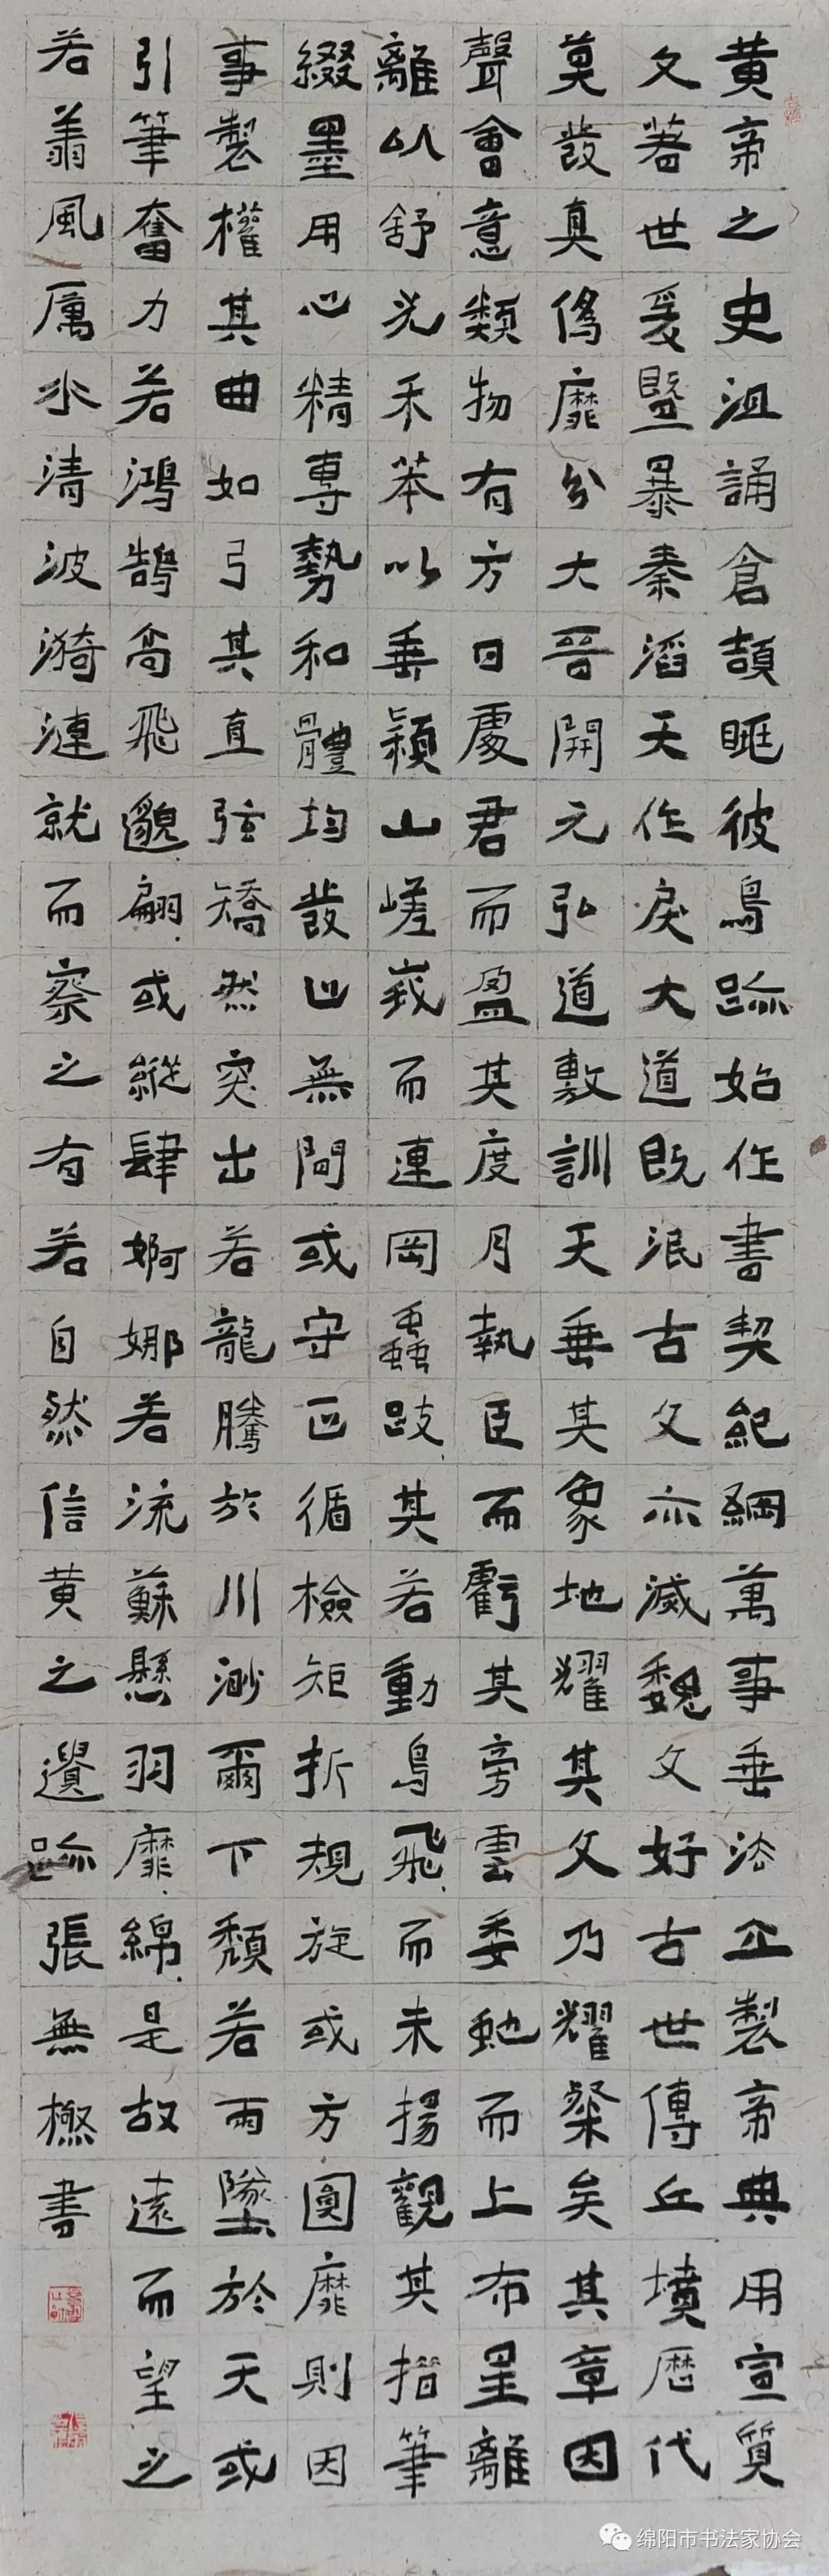 黄帝之史沮誦倉頡眺彼鳥跡始作書契紀綱萬事垂法立製帝典用宣質
文著世爰暨暴秦滔天作戾大道既泯古文亦滅魏文好古世傳丘墳暦代
莫發真偽靡分大晉開元弘道敷訓天垂其象地耀其文乃耀粲矣其章因
聲會意類物有方日處君而盈其度月執臣而虧其旁雲委虵而上布星離
離以舒光禾苯以垂穎山嵯峩而連岡蟲跂其若動鳥飛而未揚觀其措筆
綴墨用心精專勢和體均發止無間或守正循檢矩折規旋或方圓靡則因
事製權其曲如弓其直弦矯然突出若龍騰於川渺爾下頹若雨墜於天或
引筆奮力若鴻鵠高飛邈翩翩或縱肆婀娜若流蘇懸羽靡靡綿綿是故遠而望之
若翔風厲水清波漪漣就而察之有若自然信黄之遺跡張無書
绵阳市书法家协会